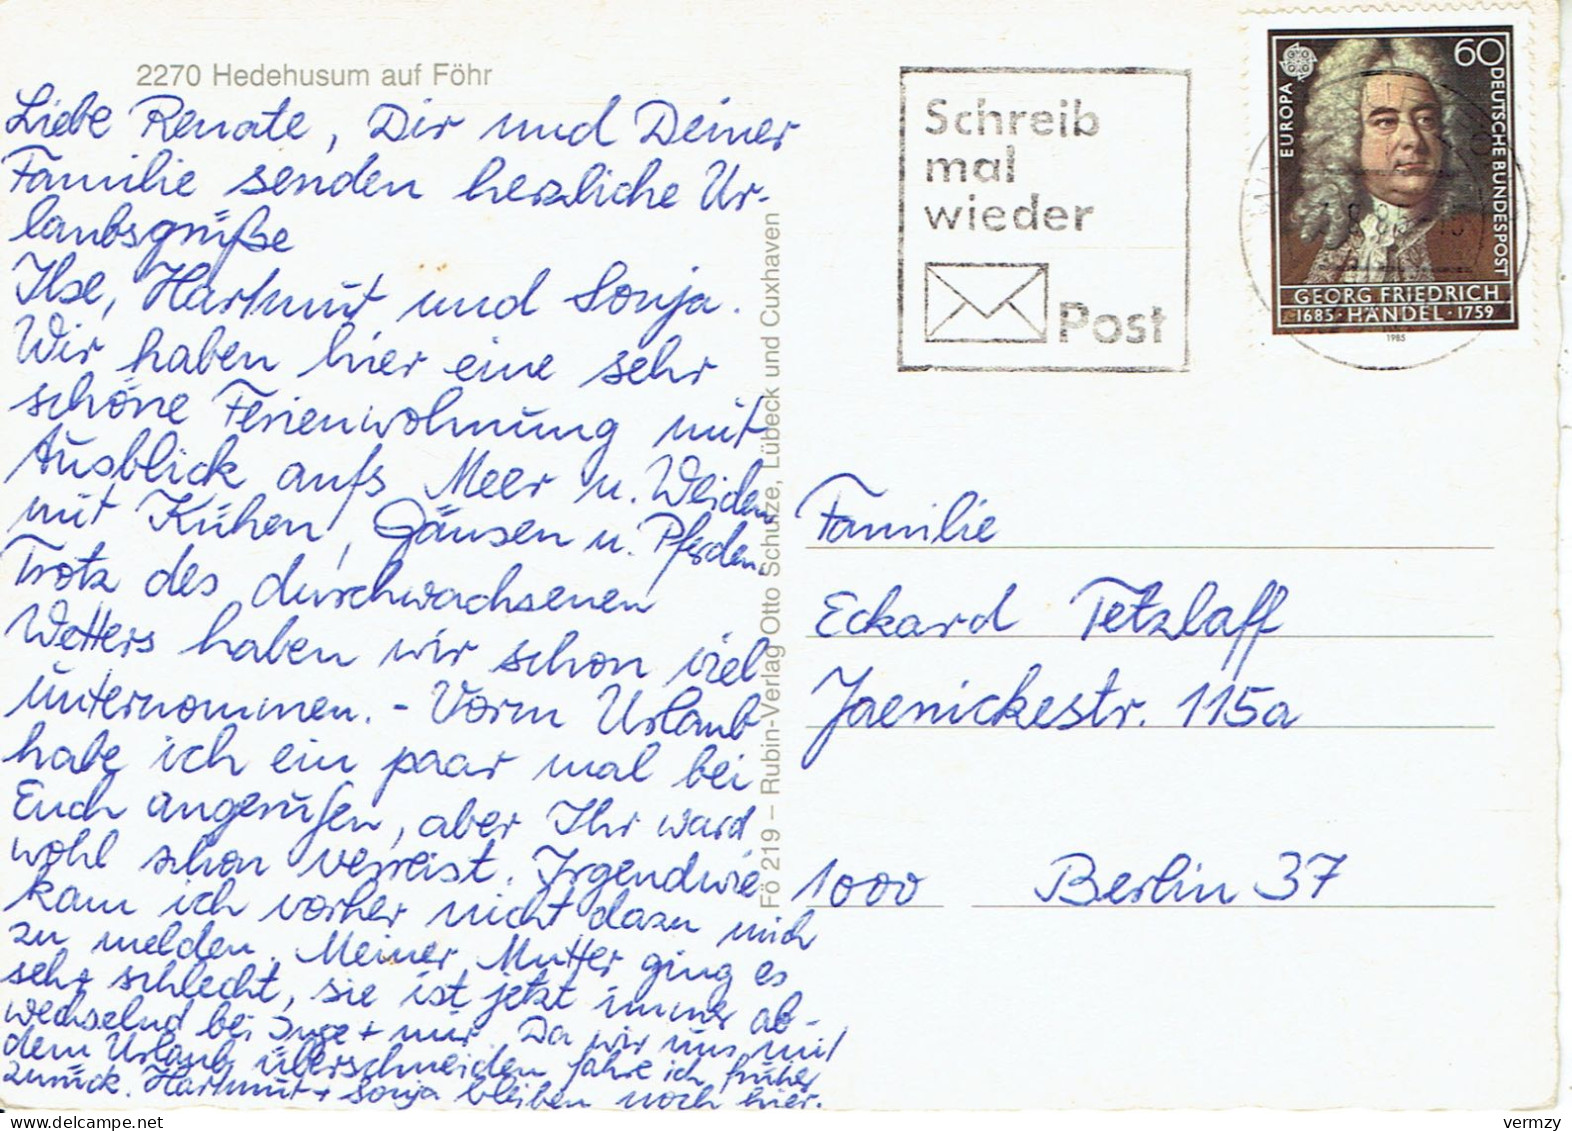 2270 Hedehusum auf Föhr
Liebe Renate, Dir und Deiner
Familie senden herzliche Ur-
laubsgrüße
Ilse, Hartmut und Sonja.
Wir haben hier eine sehr
schöne Ferienwohnung mit
Ausblick aufs Meer u. Weiden
mit Kühen, Gänsen u. Pferden.
Trotz des durchwachsenen
Wetters haben wir schon viel
unternommen. - Vorm Urlaub
habe ich ein paar mal bei
Euch angerufen, aber Ihr ward
wohl schon verreist. Irgendwie
kam ich vorher nicht dazu mich
zu melden. Meiner Mutter ging es
sehr schlecht, sie ist jetzt immer ab-
wechselnd bei Inge + mir. Da wir uns mit
dem Urlaub überschneiden fahre ich früher
zurück. Hartmut + Sonja bleiben noch hier.
Fö 219 – Rubin-Verlag Otto Schulze, Lübeck und Cuxhaven
Schreib
mal
wieder
Post
60
EUROPA
DEUTSCHE BUNDESPOST
GEORG FRIEDRICH
1685 · HÄNDEL · 1759
1985
Familie
Eckard Tetzlaff
Jaenickestr. 115a
1000 Berlin 37
vermzy